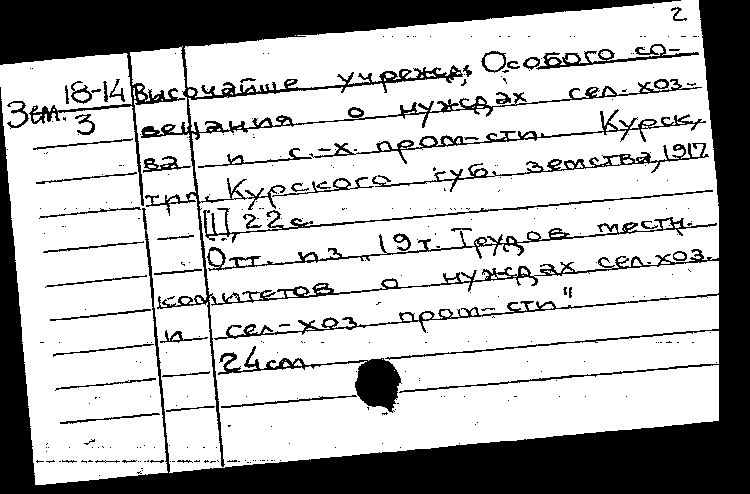 2
Зем. 18-14/3 Высочайше учрежд. Особого со-
вещания о нуждах сел.-хоз-
ва и с.-х. пром-сти. Курск,
тип. Курского губ. земства, 1917.
[1], 22 с.
Отт. из „19 т. Трудов местн.
комитетов о нуждах сел.хоз.
и сел-хоз. пром-сти".
24 см.